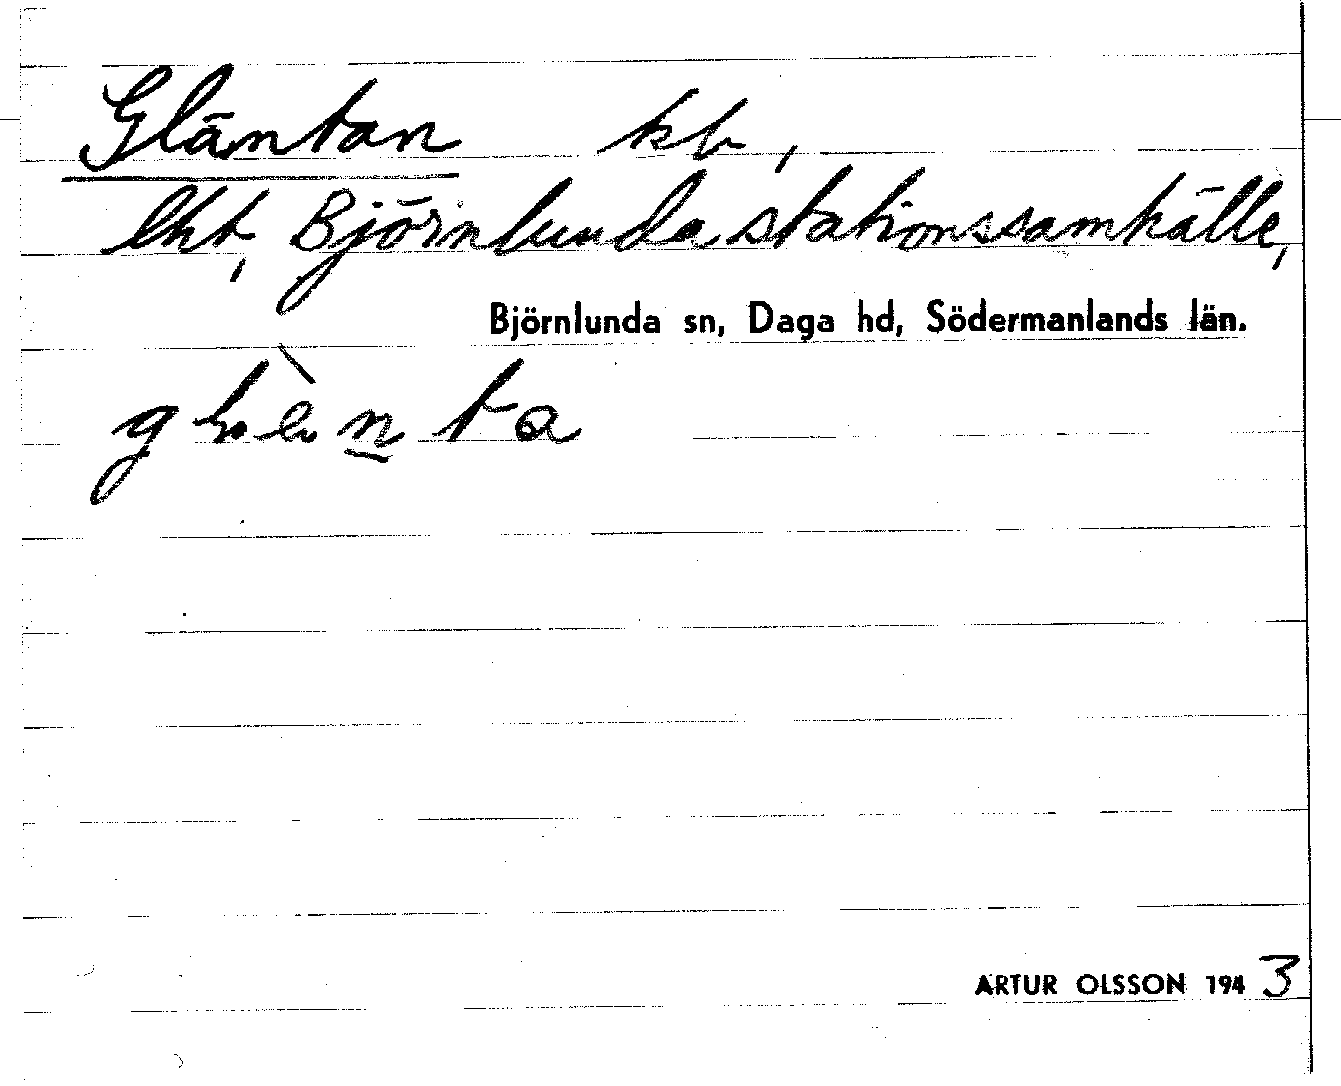 Gläntan kb,
lht, Björnlunda stationssamhälle,
Björnlunda sn, Daga hd, Södermanlands län.
ARTUR OLSSON 1943